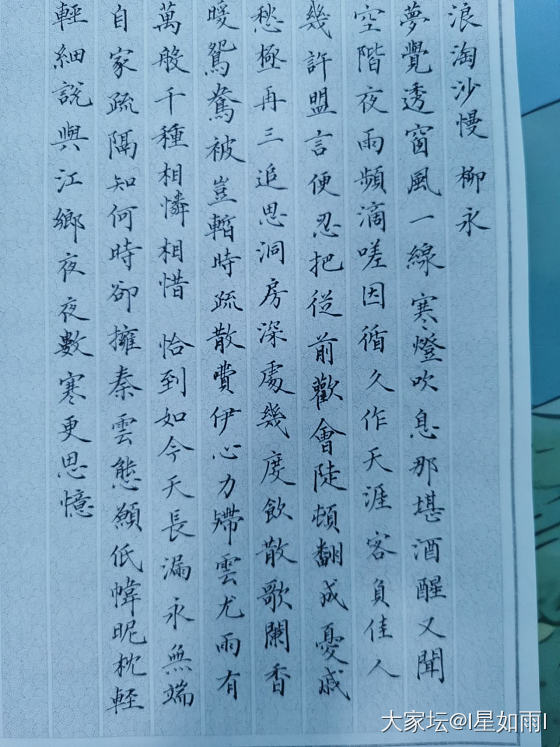 浪淘沙慢 柳永
夢覺透窗風一線寒燈吹息那堪酒醒又聞
空階夜雨頻滴嗟因循久作天涯客負佳人
幾許盟言便忍把從前歡會陡頓翻成憂戚
愁極再三追思洞房深處幾度飲散歌闌香
暖鴛鴦被豈暫時疏散費伊心力殢雲尤雨有
萬般千種相憐相惜 恰到如今天長漏永無端
自家疏隔知何時卻擁秦雲態願低幃昵枕輕
輕細說與江鄉夜夜數寒更思憶
大家坛@I星如雨I